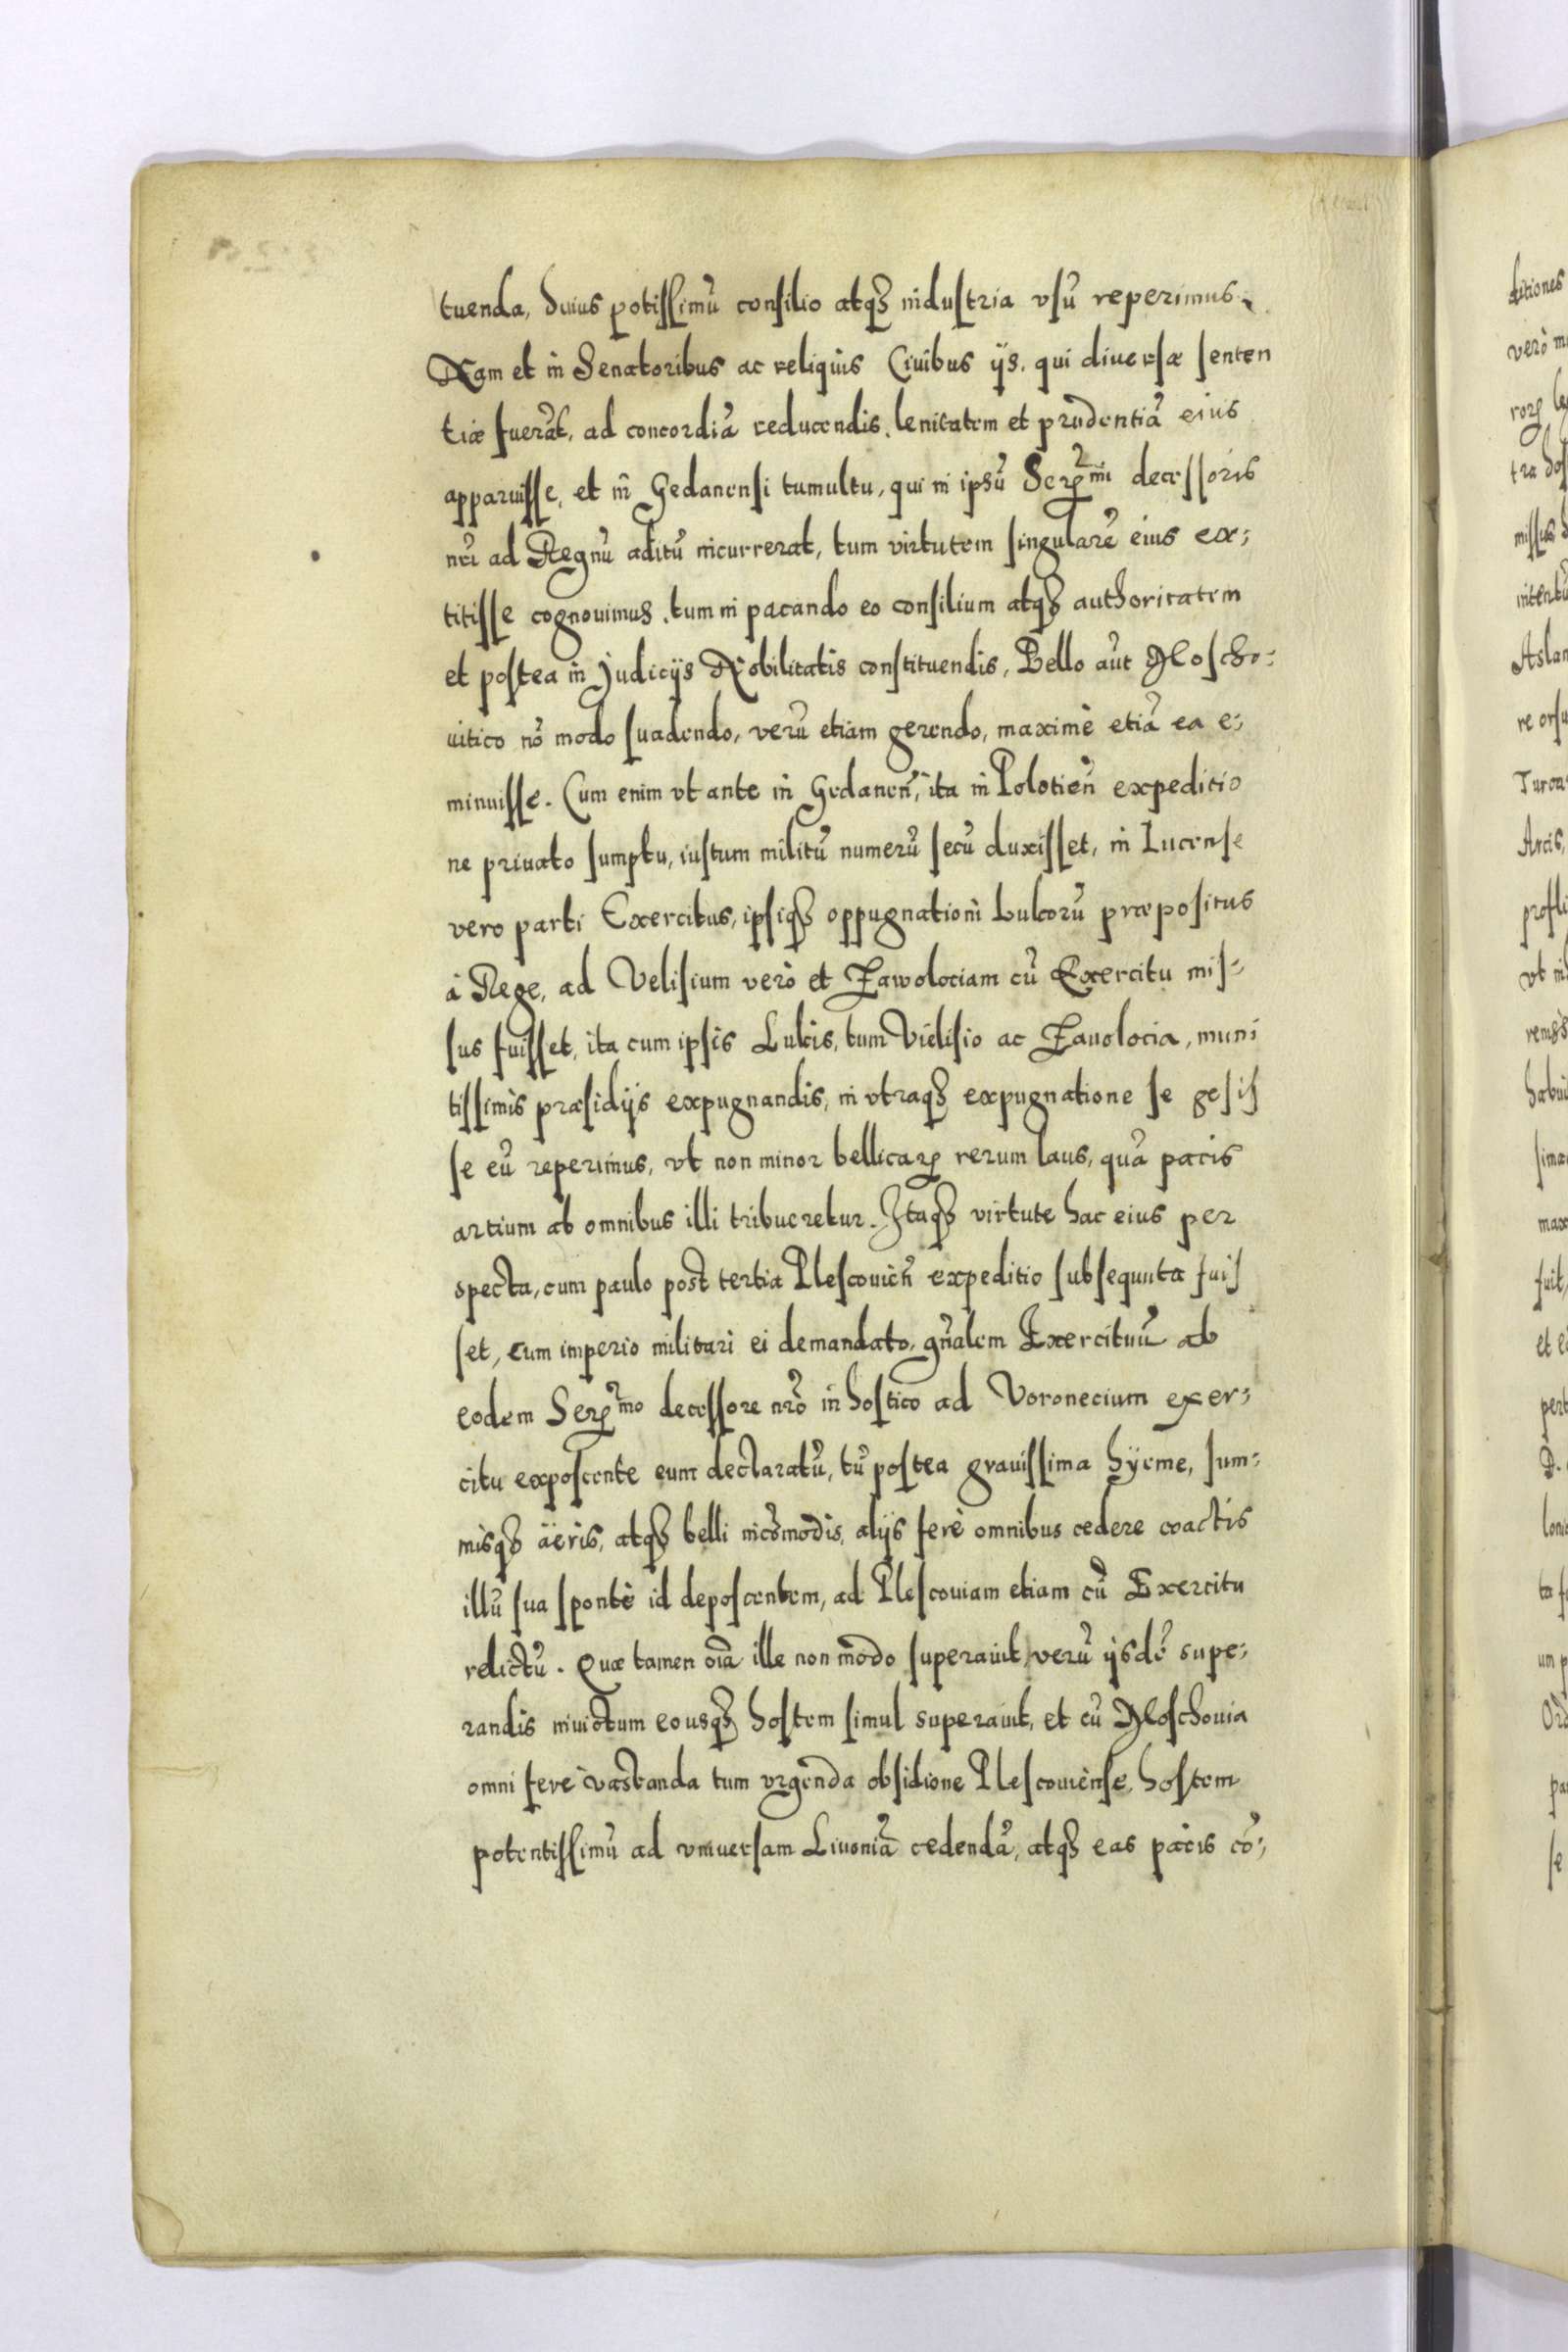 tuenda, huius potissimũ consilio atqꝫ industria vsũ reperimus.
Nam et in Senatoribus ac reliquis Ciuibus ijs, qui diuersæ senten
tiæ fuerãt, ad concordiã reducendis, lenitatem et prudentiã eius
apparuisse, et in Gedanensi tumultu, qui in ipsũ Serꝫmi decessoris
nr̃i ad Regnũ aditũ incurrerat, tum virtutem singularẽ eius ex;
titisse cognouimus, tum in pacando eo consilium atqꝫ authoritatem
et postea in Judicijs Nobilitatis constituendis, Bello aũt Moscho:
uitico nõ modo suadendo, verũ etiam gerendo, maximè etiã ea e;
minuisse. Cum enim vt ante in Gedaneñ, ita in Polotieñ expeditio
ne priuato sumptu, iustum militũ numerũ secũ duxisset, in Lucense
vero parti Exercitus, ipsiqꝫ oppugnationi Lukorũ præpositus
à Rege, ad Velisium verò et Zawolociam cũ Exercitu mis:
sus fuisset, ita cum ipsis Lukis, tum Vielisio ac Zauolocia, muni
tissimis præsidijs expugnandis, in vtraqꝫ expugnatione se gesis
se eũ reperimus, vt non minor bellicaꝝ rerum laus, quã pacis
artium ab omnibus illi tribueretur. Itaqꝫ virtute hac eius per
specta, cum paulo post tertia Plescouieñ expeditio subsequuta fuis
set, cum imperio militari ei demandato, gñalem Exercituũ ab
eodem Serꝫmo decessore nrõ in hostico ad Voronecium exer;
citu exposcente eum declaratũ, tũ postea grauissima hÿeme, sum:
misqꝫ aëris, atqꝫ belli incõmodis, alijs ferè omnibus cedere coactis
illũ sua spontè id deposcentem, ad Plescouiam etiam cũ Exercitu
relictũ. Quæ tamen oĩa ille non modo superauit, verũ ijsdẽ supe;
randis inuictum eousqꝫ hostem simul superauit, et cũ Moschouia
omni ferè vastanda tum vrgenda obsidione Plescouiense, hostem
potentissimũ ad vniuersam Liuoniã cedendã, atqꝫ eas pacis cõ;